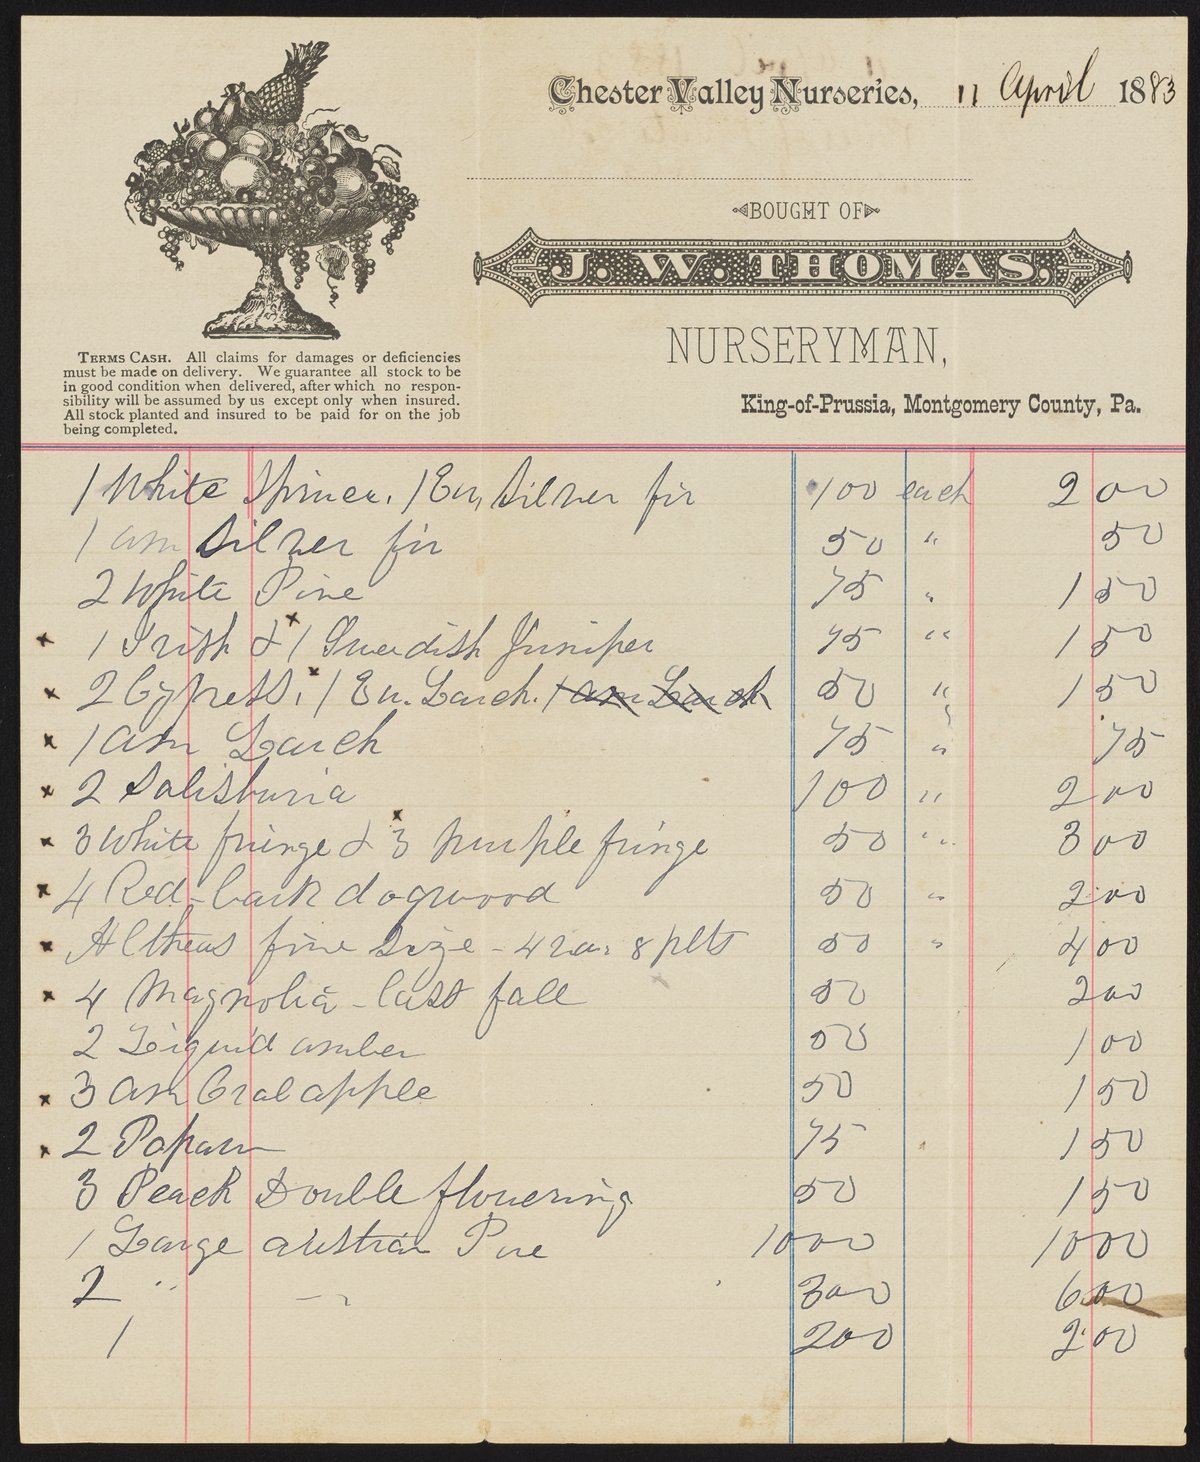 Chester Valley Nurseries, 11 April 1883
BOUGHT OF
J. W. THOMAS,
NURSERYMAN,
King-of-Prussia, Montgomery County, Pa.
TERMS CASH. All claims for damages or deficiencies
must be made on delivery. We guarantee all stock to be
in good condition when delivered, after which no respon-
sibility will be assumed by us except only when insured.
All stock planted and insured to be paid for on the job
being completed.
1 White Spruce. 1 Eu, Silver fir 100 each 2 00
1 am Silver fir 50 " 50
2 White Pine 75 " 1 50
x 1 Irish & x 1 Swedish Juniper 75 " 1 50
x 2 Cypress. x 1 Eu. Larch. 1 am Larch 50 " 1 50
x 1 am Larch 75 " 75
x 2 Salisburia 100 " 2 00
x 3 White fringe & x 3 purple fringe 50 " 3 00
x 4 Red-bark dogwood 50 " 2 00
x Altheas fine size - 4 var 8 plts 50 " 4 00
x 4 Magnolia - last fall 50 2 00
2 Liquid amber 50 1 00
x 3 am Crab apple 50 1 50
x 2 75 1 50
3 Peach Double flowering 50 1 50
1 Large austrian Pine 1000 10 00
2 " " 300 6 00
1 200 2 00